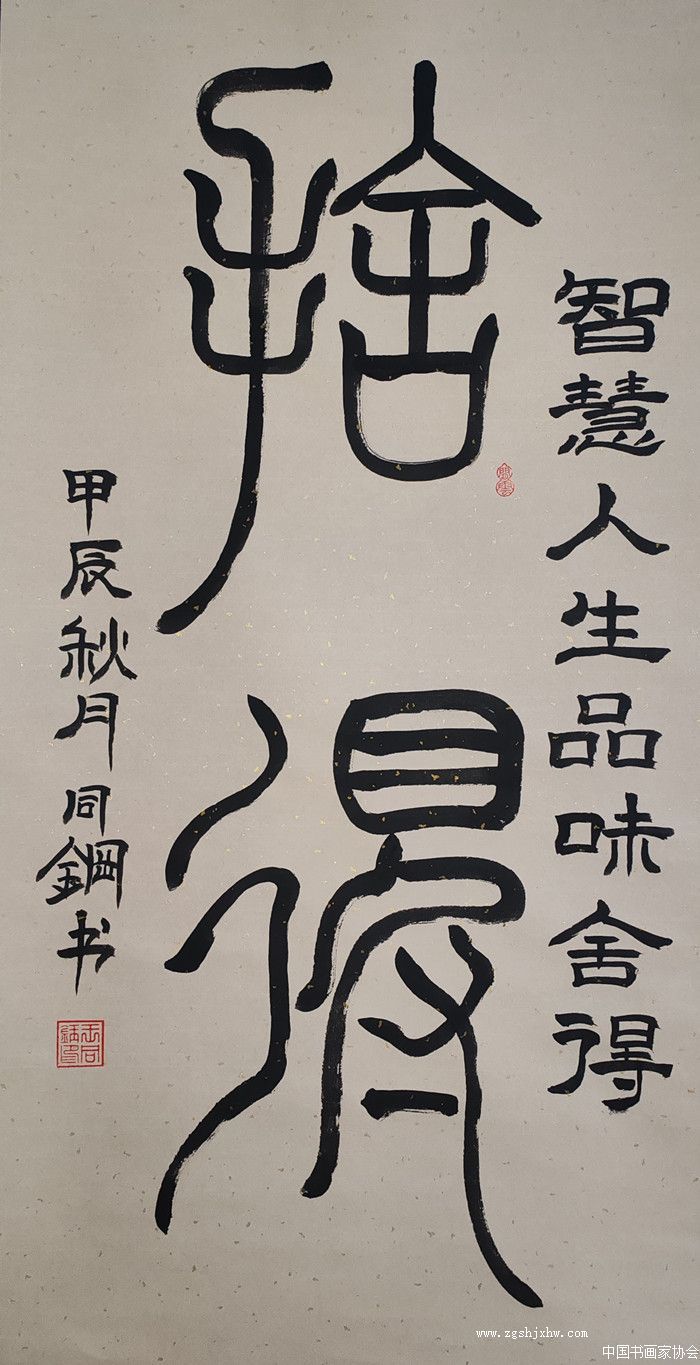 智慧人生品味舍得
捨得
甲辰秋月同鋼书
www.zgshjxhw.com
中国书画家协会